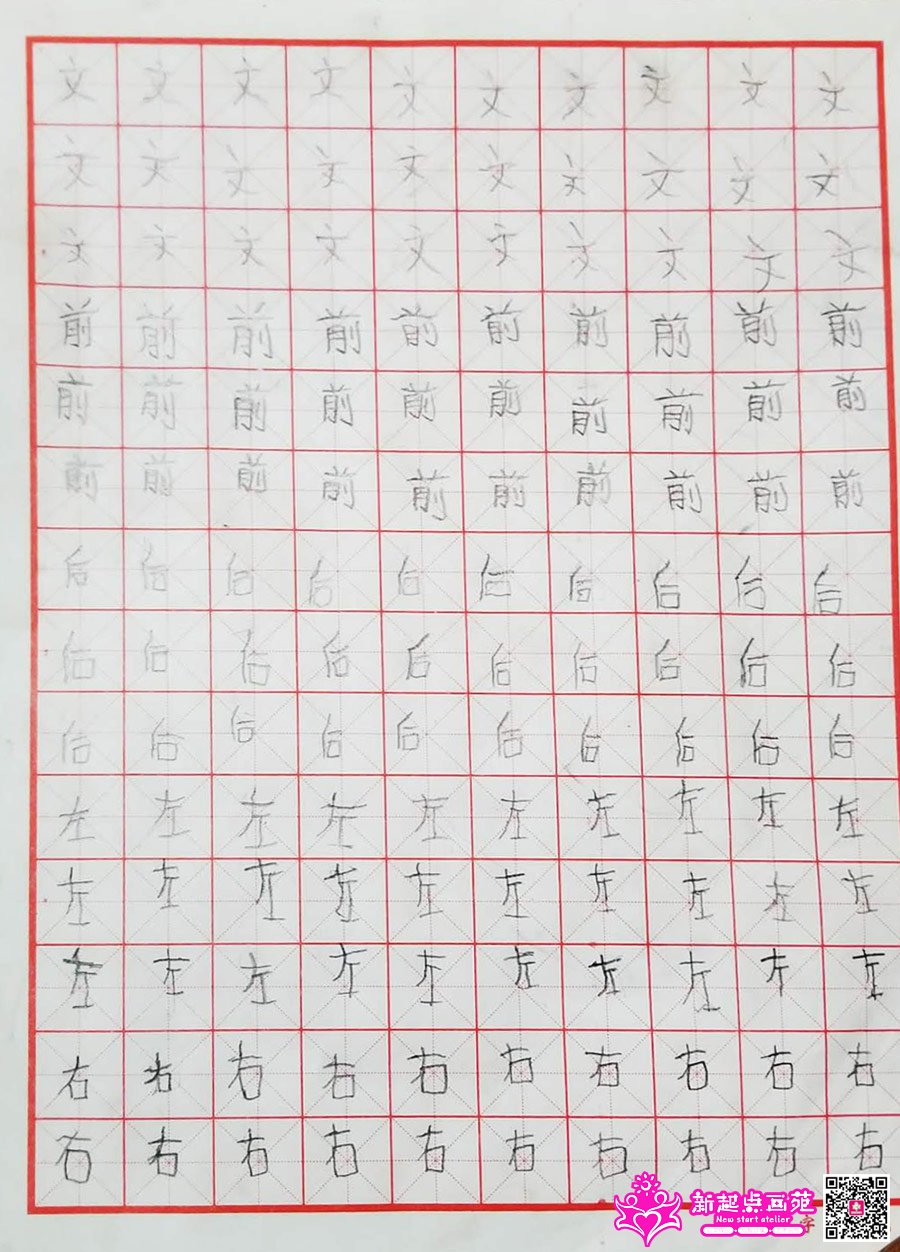 文文文文文文文文文文
文文文文文文文文文文
文文文文文文文文文文
前前前前前前前前前前
前前前前前前前前前前
前前前前前前前前前前
后后后后后后后后后后
后后后后后后后后后后
后后后后后后后后后后
左左左左左左左左左左
左左左左左左左左左左
左左左左左左左左左左
右右右右右右右右右右
右右右右右右右右右右
新起点画苑
New start atelier
字